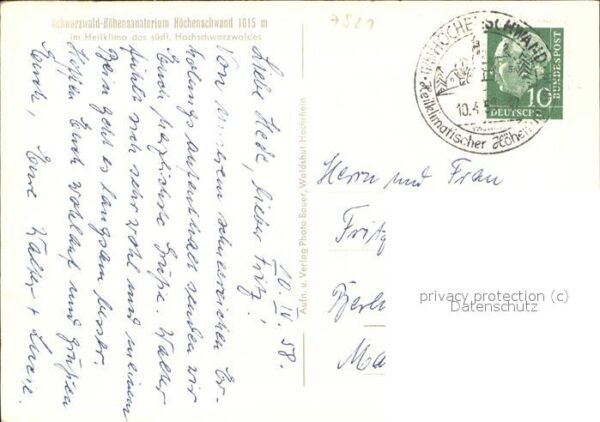 Schwarzwald-Höhensanatorium Höchenschwand 1015 m
im Heilklima des südl. Hochschwarzwaldes
7821
10. IV. 58.
Liebe Hede, lieber Fritz!
Von unserem schneereichen Er-
holungsaufenthalt senden wir
Euch herzlichste Grüße. Walter
fühlt sich sehr wohl und meinem
Bein geht es langsam besser.
Hoffen Euch wohlauf und grüßen
Euch, Eure Walter + Luise.
Aufn. u. Verlag Photo Bauer, Waldshut Hochrhein
HÖCHENSCHWAND
10.4.
Heilklimatischer Höhen
10
DEUTSCHE
BUNDESPOST
Herrn und Frau
Fritz
privacy protection (c)
Datenschutz